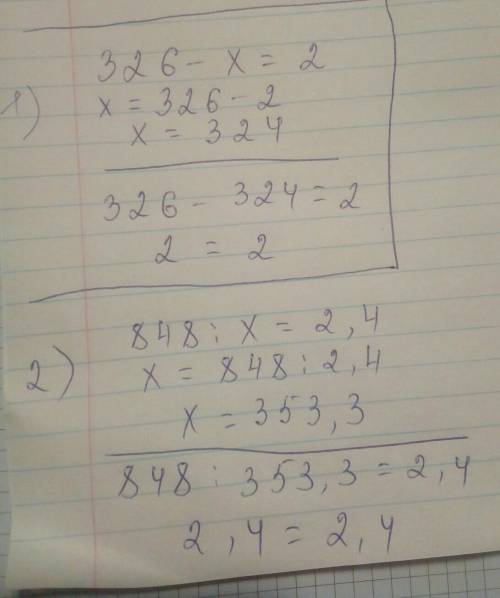 1)
326 - x = 2
x = 326 - 2
x = 324
326 - 324 = 2
2 = 2
2)
848 : x = 2,4
x = 848 : 2,4
x = 353,3
848 : 353,3 = 2,4
2,4 = 2,4